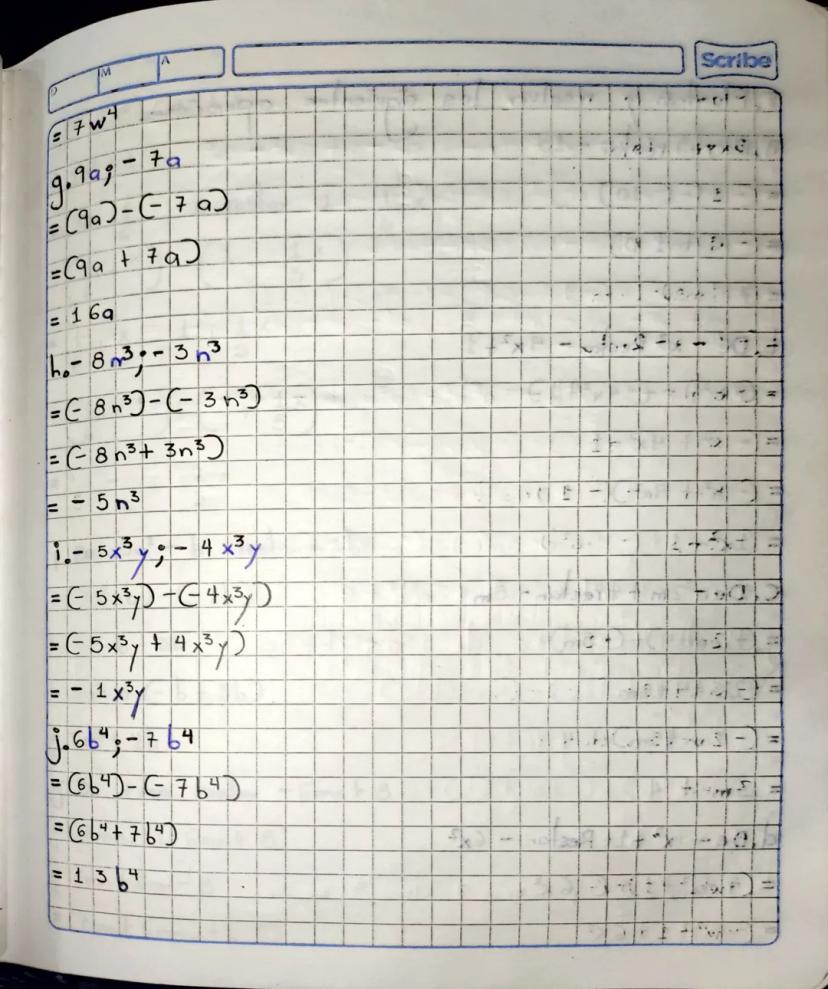 D M A Scribe
= 7w⁴
g. 9a; - 7a
= (9a) - (- 7a)
= (9a + 7a)
= 16a
h. - 8n³; - 3n³
= (- 8n³) - (- 3n³)
= (- 8n³ + 3n³)
= - 5n³
i. - 5x³y; - 4x³y
= (- 5x³y) - (- 4x³y)
= (- 5x³y + 4x³y)
= - 1x³y
j. 6b⁴; - 7b⁴
= (6b⁴) - (- 7b⁴)
= (6b⁴ + 7b⁴)
= 13b⁴